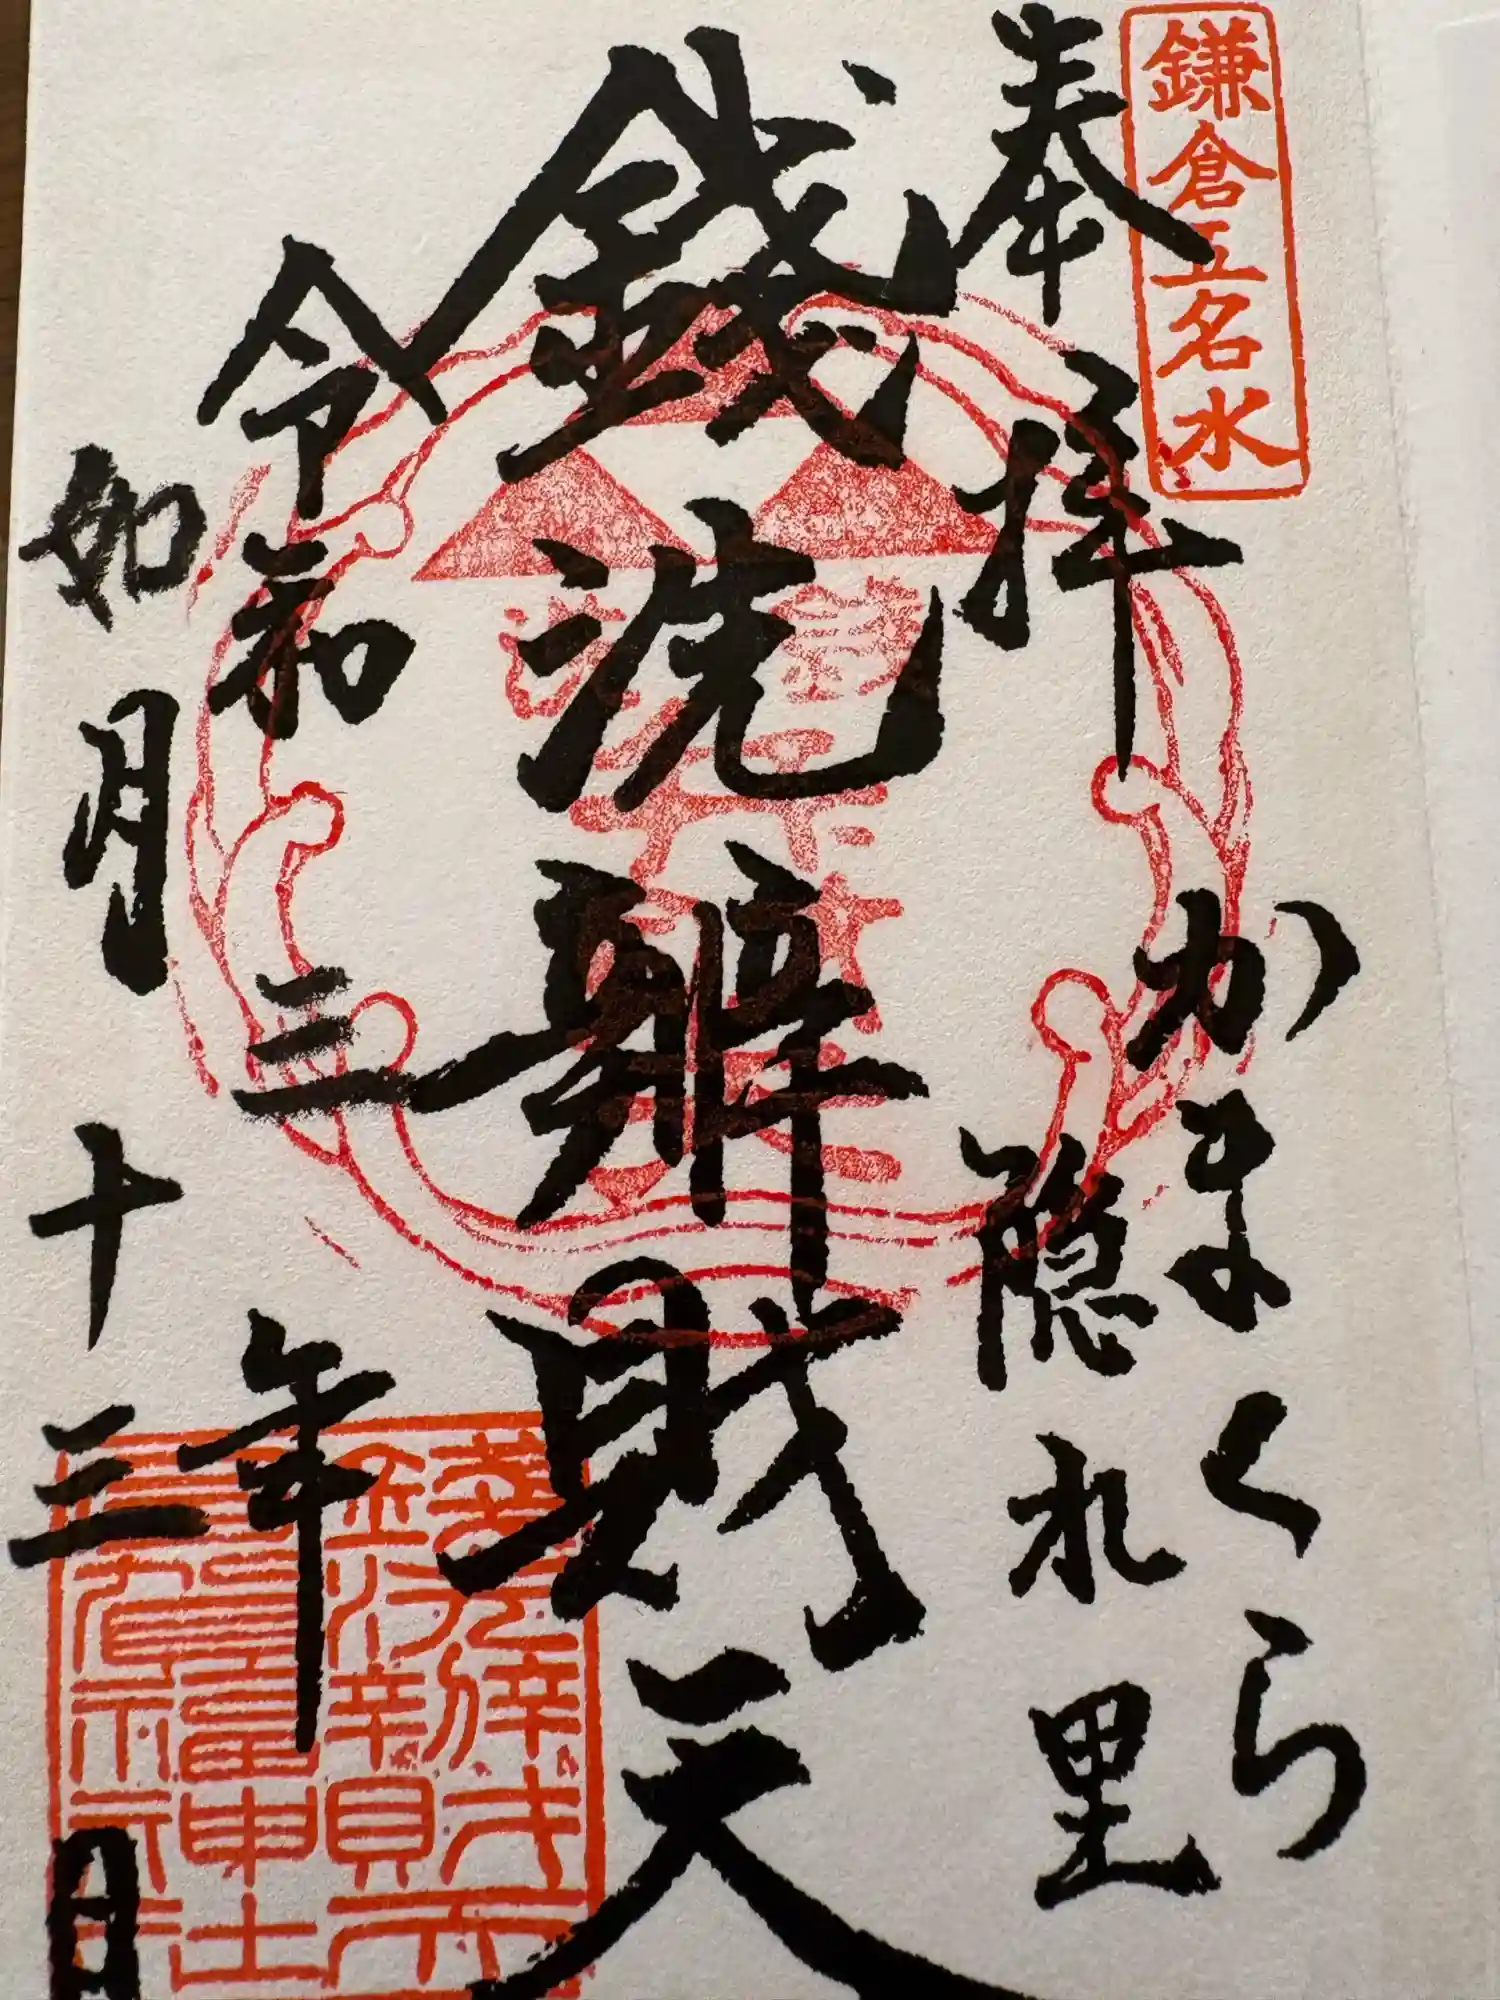 鎌倉五名水
奉拝
かまくら
隠れ里
錢洗辨財天
令和三年
如月十三日